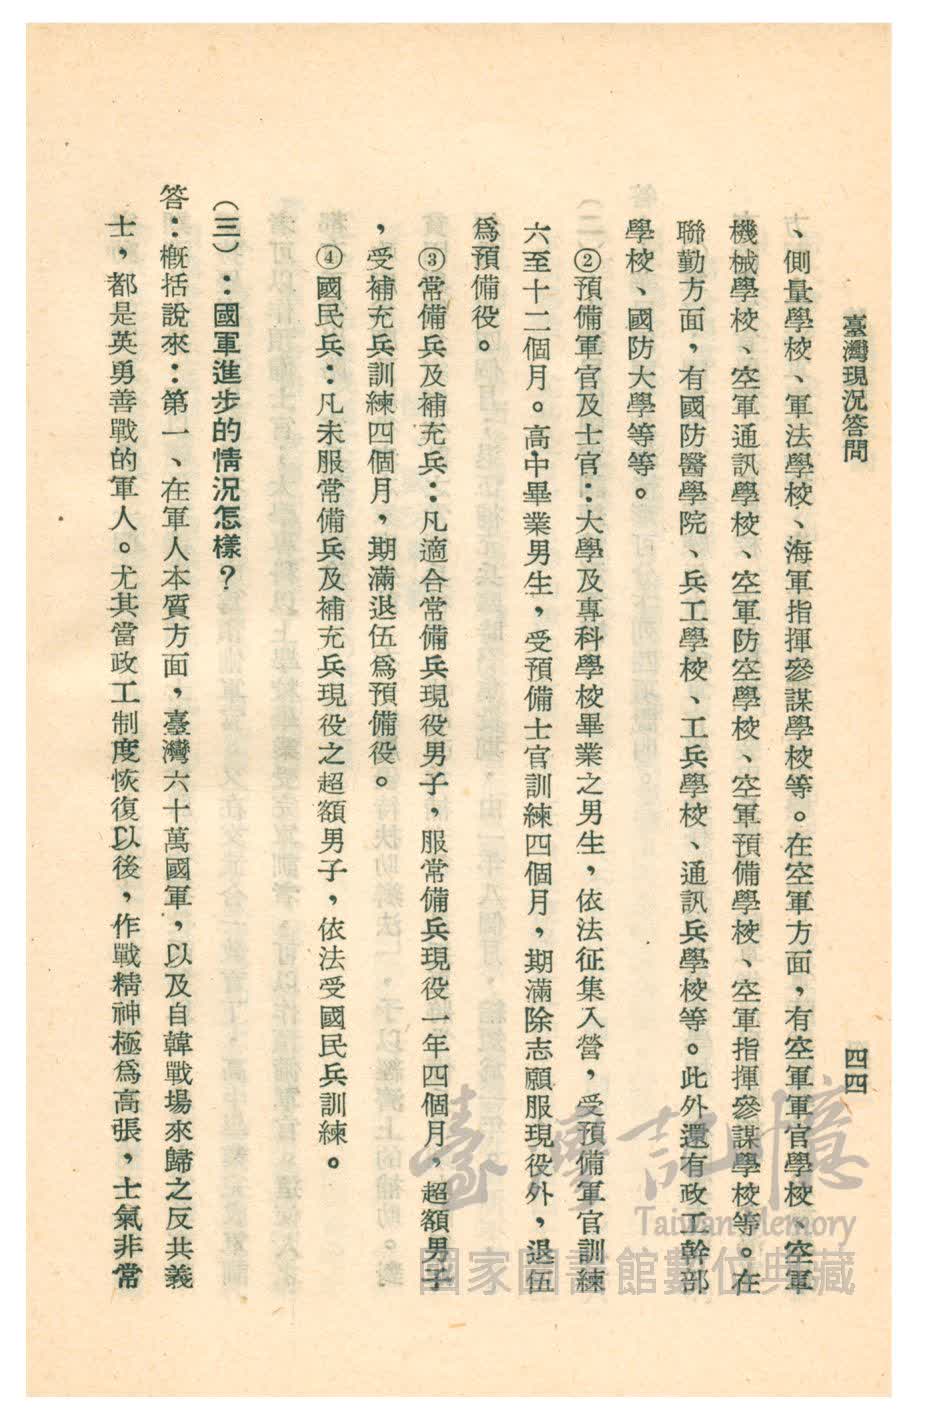 臺灣現況答問
四四
、側量學校、軍法學校、海軍指揮參謀學校等。在空軍方面，有空軍軍官學校、空軍
機械學校、空軍通訊學校、空軍防空學校、空軍預備學校、空軍指揮參謀學校等。在
聯勤方面，有國防醫學院、兵工學校、工兵學校、通訊兵學校等。此外還有政工幹部
學校、國防大學等等。
②預備軍官及士官：大學及專科學校畢業之男生，依法征集入營，受預備軍官訓練
六至十二個月。高中畢業男生，受預備士官訓練四個月，期滿除志願服現役外，退伍
爲預備役。
③常備兵及補充兵：凡適合常備兵現役男子，服常備兵現役一年四個月，超額男子
，受補充兵訓練四個月，期滿退伍爲預備役。
④國民兵：凡未服常備兵及補充兵現役之超額男子，依法受國民兵訓練。
（三）：國軍進步的情況怎樣？
答：概括說來：第一、在軍人本質方面，臺灣六十萬國軍，以及自韓戰場來歸之反共義
士，都是英勇善戰的軍人。尤其當政工制度恢復以後，作戰精神極爲高張，士氣非常
臺灣記憶
Taiwan Memory
國家圖書館數位典藏